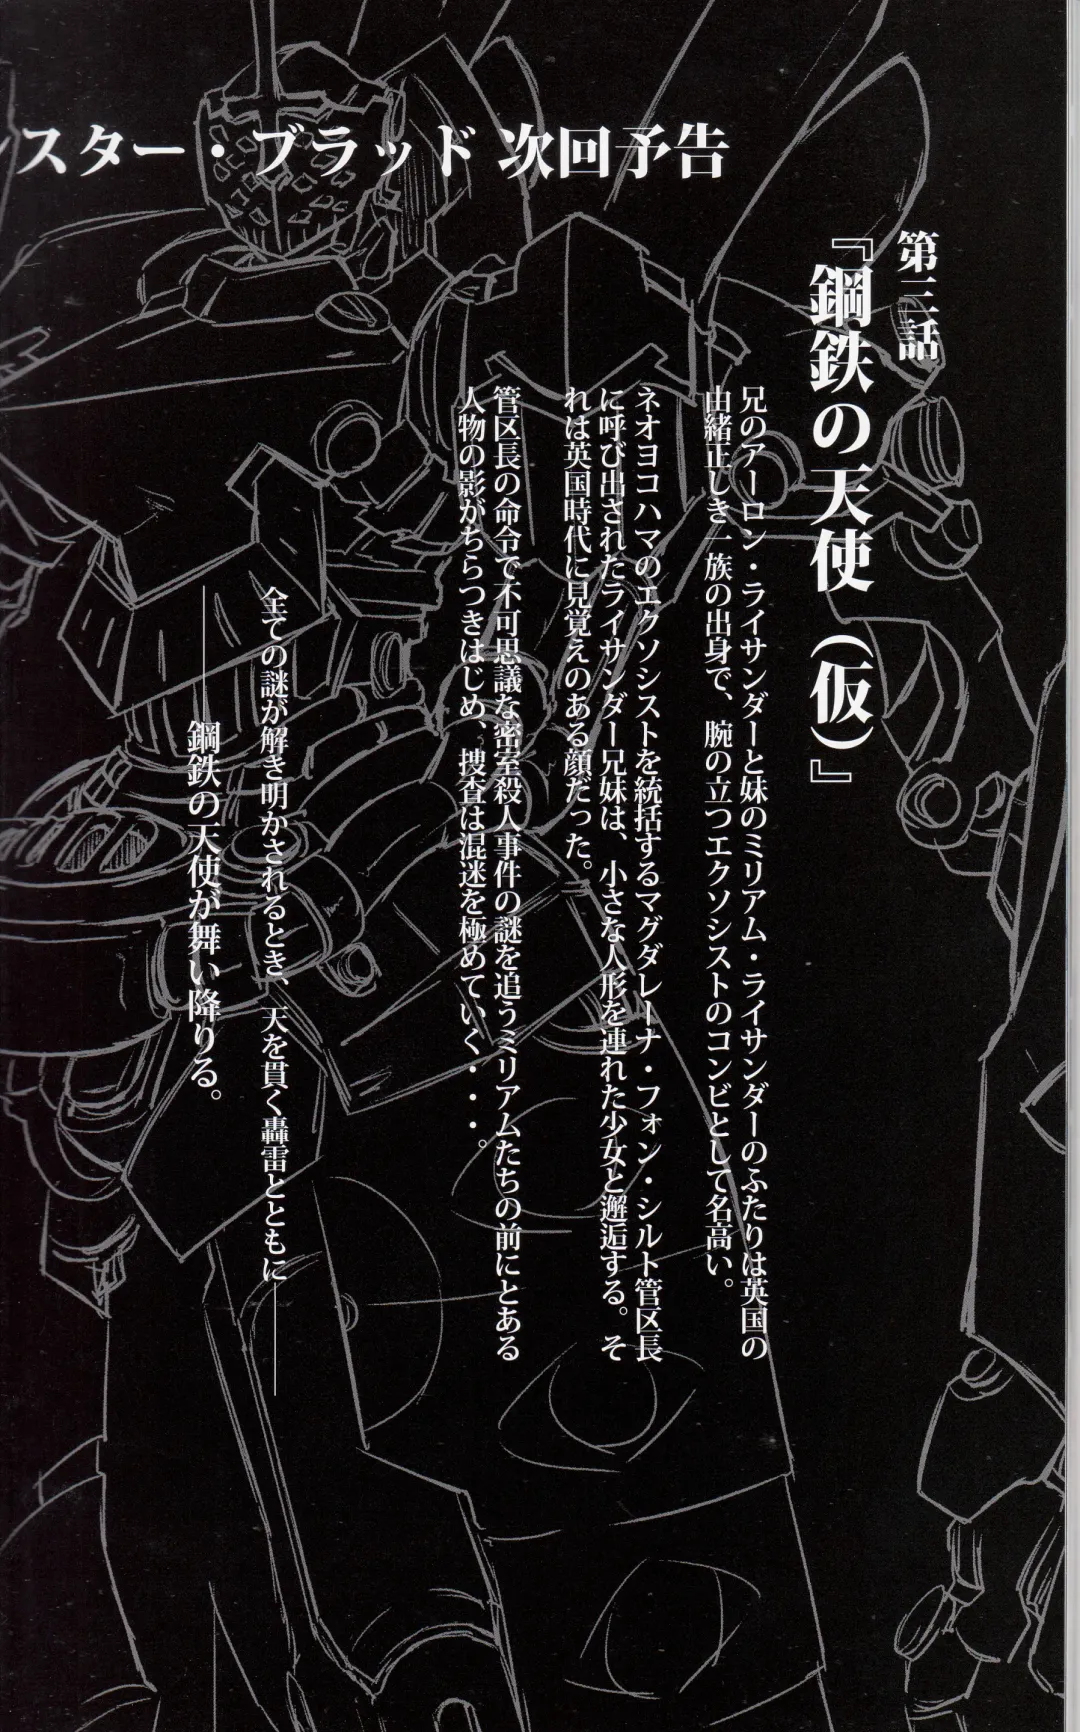 スター・ブラッド 次回予告
第三話
『鋼鉄の天使（仮）』
兄のアーロン・ライサンダーと妹のミリアム・ライサンダーのふたりは英国の
由緒正しき一族の出身で、腕の立つエクソシストのコンビとして名高い。
ネオヨコハマのエクソシストを統括するマグダレーナ・フォン・シルト管区長
に呼び出されたライサンダー兄妹は、小さな人形を連れた少女と邂逅する。そ
れは英国時代に見覚えのある顔だった。
管区長の命令で不可思議な密室殺人事件の謎を追うミリアムたちの前にとある
人物の影がちらつきはじめ、捜査は混迷を極めていく・・・。
全ての謎が解き明かされるとき、天を貫く轟雷とともに――――
――――鋼鉄の天使が舞い降りる。